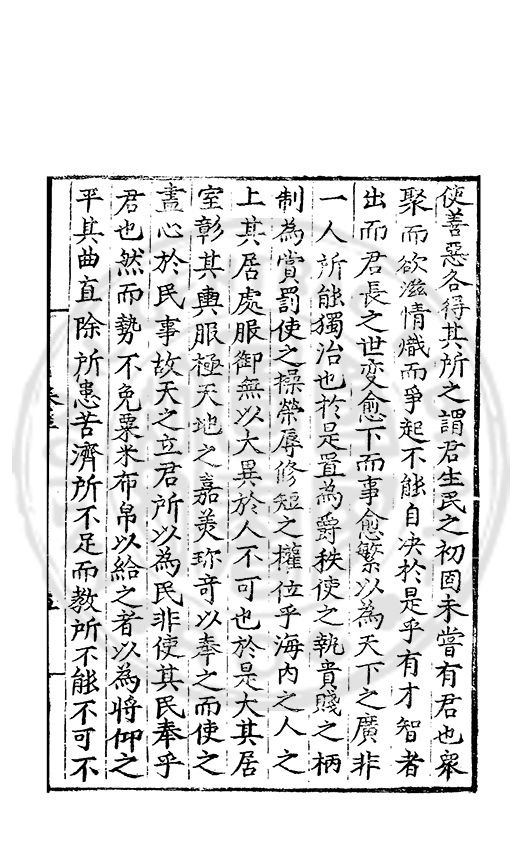 使善惡各得其所之謂君生民之初固未嘗有君也衆
聚而欲滋情熾而爭起不能自决於是乎有才智者
出而君長之世變愈下而事愈繁以為天下之廣非
一人所能獨治也於是置為爵秩使之執貴賤之柄
制為賞罰使之操榮辱修短之權位乎海内之人之
上其居處服御無以大異於人不可也於是大其居
室彰其輿服極天地之嘉美珍奇以奉之而使之
盡心於民事故天之立君所以為民非使其民奉乎
君也然而勢不免粟米布帛以給之者以為將仰之
平其曲直除所患苦濟所不足而教所不能不可不